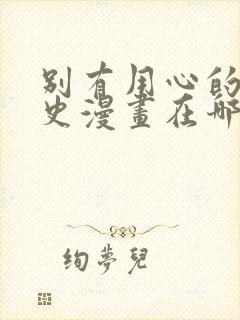 别有用心的
史漫畫在哪
绚夢兒